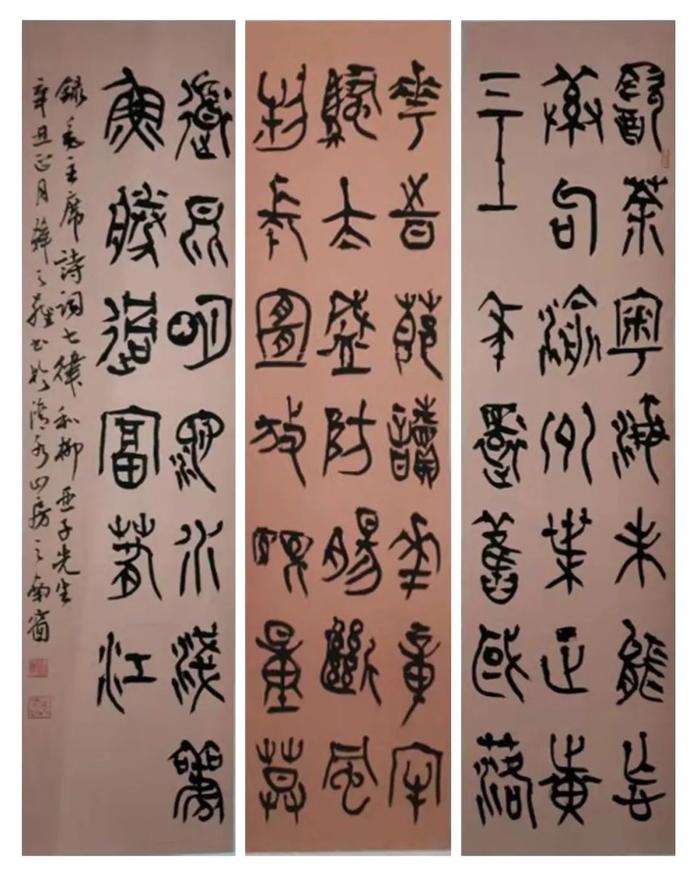 飲茶粵海未能忘
索句渝州葉正黃
三十一年還舊國落
華時節讀華章牢
騷太盛防腸斷風
物長宜放眼量莫
道昆明池水淺觀
魚勝過富春江
録毛主席詩詞七律和柳亞子先生
辛丑正月韓之書於清山房之南窗